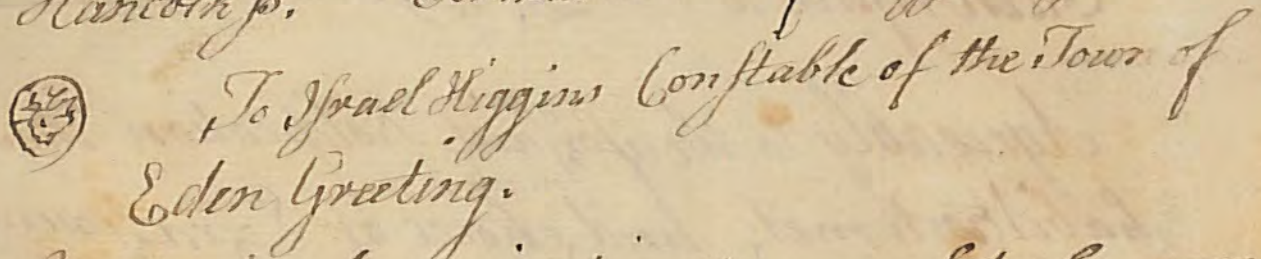 To Israel Higgins Constable of the Town of
Eden Greeting.